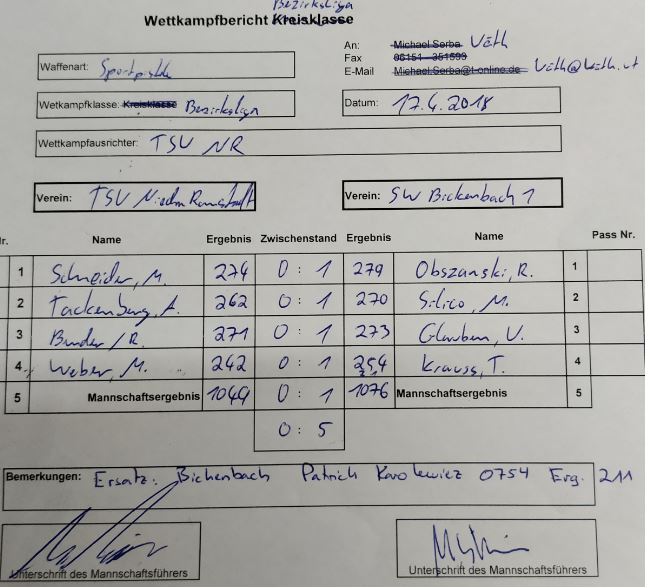 Bezirksliga
Wettkampfbericht Kreisklasse
An: Michael Serba Veth
Fax 06151 - 351593
E-Mail Michael.Serba@t-online.de
Waffenart: Sportpistole
Wetkampfklasse: Kreisklasse Bezirksliga
Datum: 17.4.2018
Wettkampfausrichter: TSV NR
Verein: TSV Nieder Ramstadt
Verein: SW Bickenbach 1
Name Ergebnis Zwischenstand Ergebnis Name Pass Nr.
1 Schneider, M. 274 0 : 1 279 Obszanski, R. 1
2 Tackenberg, A. 262 0 : 1 270 Silico, M. 2
3 Bunder, R. 271 0 : 1 273 Glauben, V. 3
4 Weber, M. 242 0 : 1 254 Krauss, T. 4
5 Mannschaftsergebnis 1049 0 : 1 1076 Mannschaftsergebnis 5
0 : 5
Bemerkungen: Ersatz: Bickenbach Patrick Karolewiez 0754 Erg. 211
Unterschrift des Mannschaftsführers
Unterschrift des Mannschaftsführers